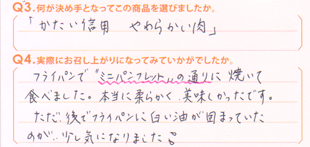 Q3.何が決め手となってこの商品を選びましたか。
「かたい信用 やわらかい肉」
Q4.実際にお召し上がりになってみていかがでしたか。
フライパンで“ミニパンフレット”の通りに焼いて
食べました。本当に柔らかく、美味しかったです。
ただ、後でフライパンに白い油が固まっていた
のが‥少し気になりました